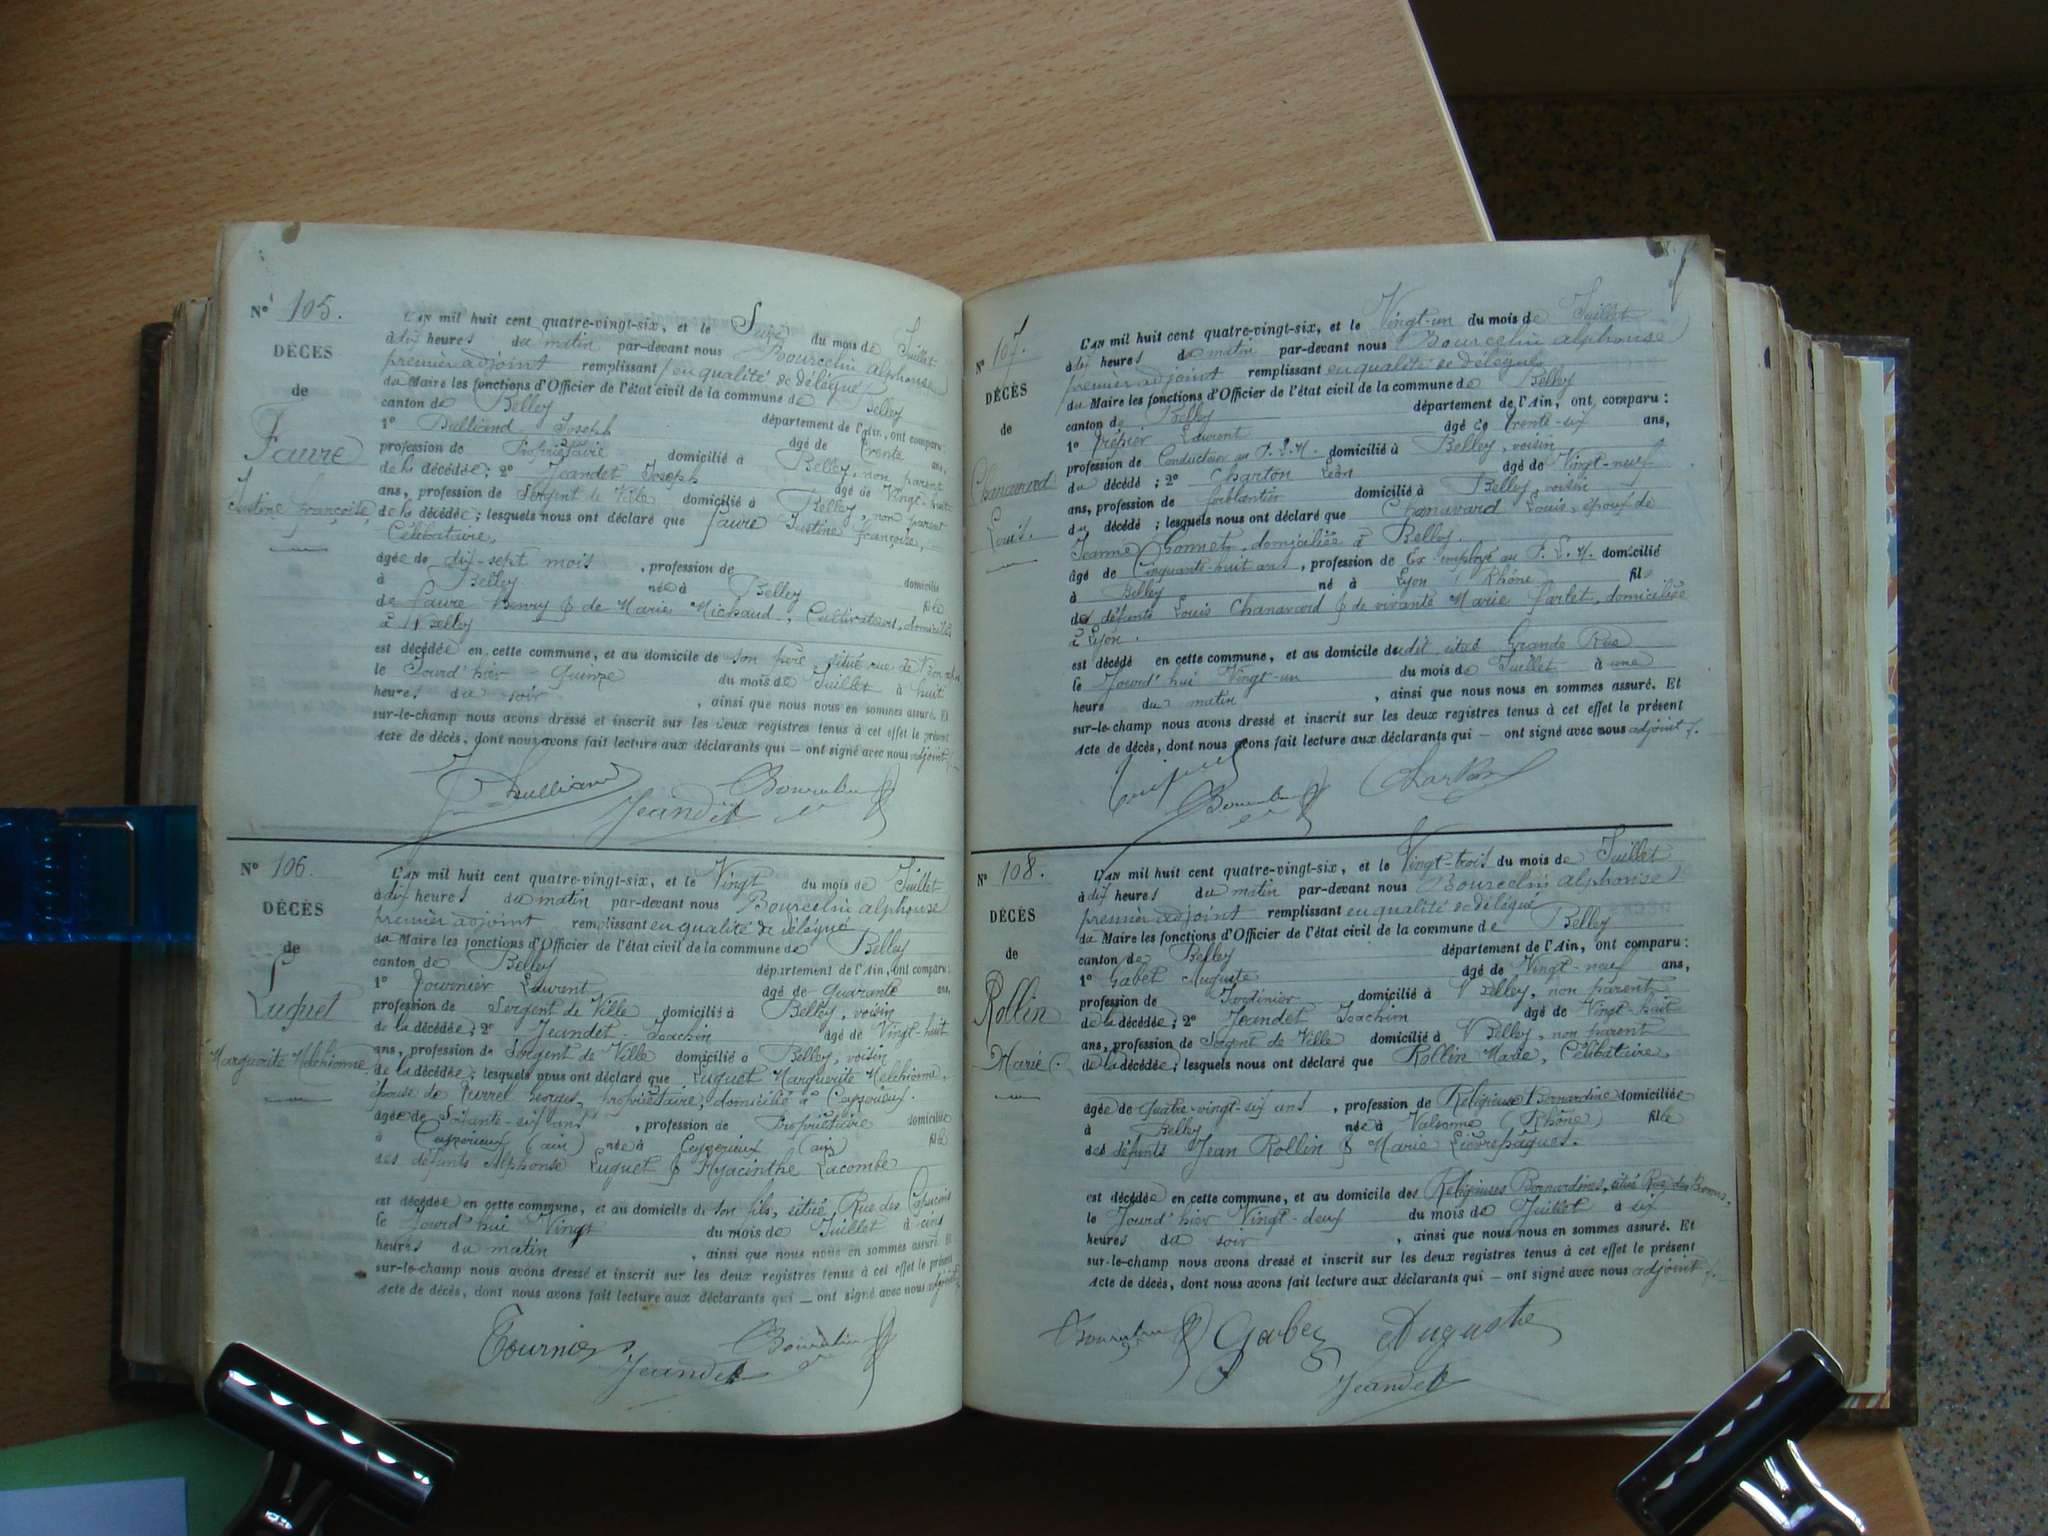 N° 105.
DÉCÈS
de
Faure
Justine françoise
L'AN mil huit cent quatre-vingt-six, et le Seize du mois de Juillet
à dix heures du matin par-devant nous Bourcelin alphonse
premier adjoint remplissant en qualité de délégué
du Maire les fonctions d'Officier de l'état civil de la commune de Belley
canton de Belley département de l'Ain, ont comparu:
1° Joseph âgé de trente ans,
profession de Propriétaire domicilié à Belley, non parent
de la décédée; 2° Jeandet Joseph âgé de Vingt-huit
ans, profession de Sergent de Ville domicilié à Belley, non parent
de la décédée; lesquels nous ont déclaré que faure Justine françoise,
Célibataire,
âgée de dix-sept mois, profession de domiciliée
à Belley née à Belley fille
de faure Henry & de Marie Michaud, Cultivateurs, domiciliés
à Belley
est décédée en cette commune, et au domicile de son père, situé rue de
le Jourd'hier Quinze du mois de Juillet à huit
heures du soir, ainsi que nous nous en sommes assuré. Et
sur-le-champ nous avons dressé et inscrit sur les deux registres tenus à cet effet le présent
acte de décès, dont nous avons fait lecture aux déclarants qui — ont signé avec nous adjoint
Jeandet
N° 106.
DÉCÈS
de
Luquet
Marguerite Melchionne
L'AN mil huit cent quatre-vingt-six, et le Vingt du mois de Juillet
à dix heures du matin par-devant nous Bourcelin alphonse
premier adjoint remplissant en qualité de délégué
du Maire les fonctions d'Officier de l'état civil de la commune de Belley
canton de Belley département de l'Ain, ont comparu:
1° Fournier Laurent âgé de quarante ans,
profession de Sergent de Ville domicilié à Belley, voisin
de la décédée; 2° Jeandet Joachim âgé de Vingt-huit
ans, profession de Sergent de Ville domicilié à Belley, voisin
de la décédée; lesquels nous ont déclaré que Luquet Marguerite Melchionne,
épouse de propriétaire, domicilié à Ceyzerieux.
âgée de ans, profession de Propriétaire domiciliée
à Ceyzerieux (ain) née à Ceyzerieux (ain) fille
des défunts Alphonse Luquet & Hyacinthe Lacombe
est décédée en cette commune, et au domicile de son fils, situé, Rue des Capucins
le Jourd'hui Vingt du mois de Juillet à cinq
heures du matin, ainsi que nous nous en sommes assuré. Et
sur-le-champ nous avons dressé et inscrit sur les deux registres tenus à cet effet le présent
acte de décès, dont nous avons fait lecture aux déclarants qui — ont signé avec nous adjoint
Fournier
Jeandet
N° 107.
DÉCÈS
de
Chanavard
Louis.
L'AN mil huit cent quatre-vingt-six, et le Vingt-un du mois de Juillet
à dix heures du matin par-devant nous Bourcelin alphonse
premier adjoint remplissant en qualité de délégué
du Maire les fonctions d'Officier de l'état civil de la commune de Belley
canton de Belley département de l'Ain, ont comparu:
1° Laurent âgé de trente-six ans,
profession de Conducteur au P. L. M. domicilié à Belley, voisin
du décédé; 2° Charton Léon âgé de Vingt-neuf
ans, profession de ferblantier domicilié à Belley, voisin
du décédé; lesquels nous ont déclaré que Chanavard Louis, époux de
Jeanne domiciliée à Belley.
âgé de Cinquante-huit ans, profession de Ex employé au P. L. M. domicilié
à Belley né à Lyon (Rhône) fils
de défunts Louis Chanavard & de vivante Marie farlet, domiciliée
à Lyon.
est décédé en cette commune, et au domicile dudit situé Grande Rue
le Jourd'hui Vingt-un du mois de Juillet à une
heure du matin, ainsi que nous nous en sommes assuré. Et
sur-le-champ nous avons dressé et inscrit sur les deux registres tenus à cet effet le présent
acte de décès, dont nous avons fait lecture aux déclarants qui — ont signé avec nous adjoint
Charton
N° 108.
DÉCÈS
de
Rollin
Marie
L'AN mil huit cent quatre-vingt-six, et le Vingt-trois du mois de Juillet
à dix heures du matin par-devant nous Bourcelin alphonse
premier adjoint remplissant en qualité de délégué
du Maire les fonctions d'Officier de l'état civil de la commune de Belley
canton de Belley département de l'Ain, ont comparu:
1° Gabet Auguste âgé de Vingt-neuf ans,
profession de Jardinier domicilié à Belley, non parent
de la décédée; 2° Jeandet Joachim âgé de Vingt-huit
ans, profession de Sergent de Ville domicilié à Belley, non parent
de la décédée; lesquels nous ont déclaré que Rollin Marie, Célibataire,
âgée de quatre-vingt-six ans, profession de Religieuse Bernardine domiciliée
à Belley née à Valsonne (Rhône) fille
des défunts Jean Rollin & Marie Lièvrepâques.
est décédée en cette commune, et au domicile des Religieuses Bernardines, situé Rue des Barons,
le Jourd'hier Vingt-deux du mois de Juillet à six
heures du soir, ainsi que nous nous en sommes assuré. Et
sur-le-champ nous avons dressé et inscrit sur les deux registres tenus à cet effet le présent
acte de décès, dont nous avons fait lecture aux déclarants qui — ont signé avec nous adjoint
Gabet Auguste
Jeandet